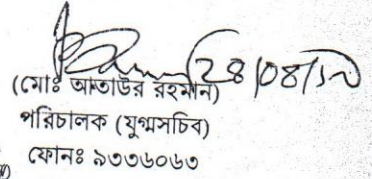 ২৪/০৪/১৭
(মোঃ আতাউর রহমান)
পরিচালক (যুগ্মসচিব)
ফোনঃ ৯৩৩৬০৬৩